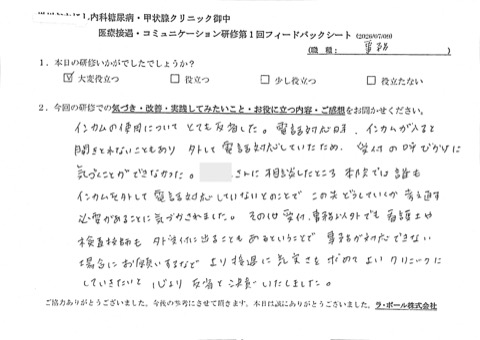 内科糖尿病・甲状腺クリニック御中
医療接遇・コミュニケーション研修第1回フィードバックシート (2026/07/09)
(職 種: 事務 )
1. 本日の研修いかがでしたでしょうか?
☑ 大変役立つ □ 役立つ □ 少し役立つ □ 役立たない
2. 今回の研修での気づき・改善・実践してみたいこと・お役に立つ内容・ご感想をお聞かせください。
インカムの使用について とても反省した。電話対応時、インカムが入ると
聞きとれないこともあり 外して電話対応していたため、受付の呼びかけに
気づくことができなかった。 さんに相談したところ 本院では誰も
インカムを外して電話対応していないとのことで この先どうしていくか考え直す
必要があることに気づかされました。その他 受付、事務以外でも 看護士や
検査技師も 外受付に出ることもあるということで 事務が対応できない
場合に お願いするなど より接遇に気安さを 求めて よい クリニックに
していきたいと 心より 反省と決意いたしました。
ご協力ありがとうございました。今後の参考にさせて頂きます。本日は誠にありがとうございました。ラ・ポール株式会社